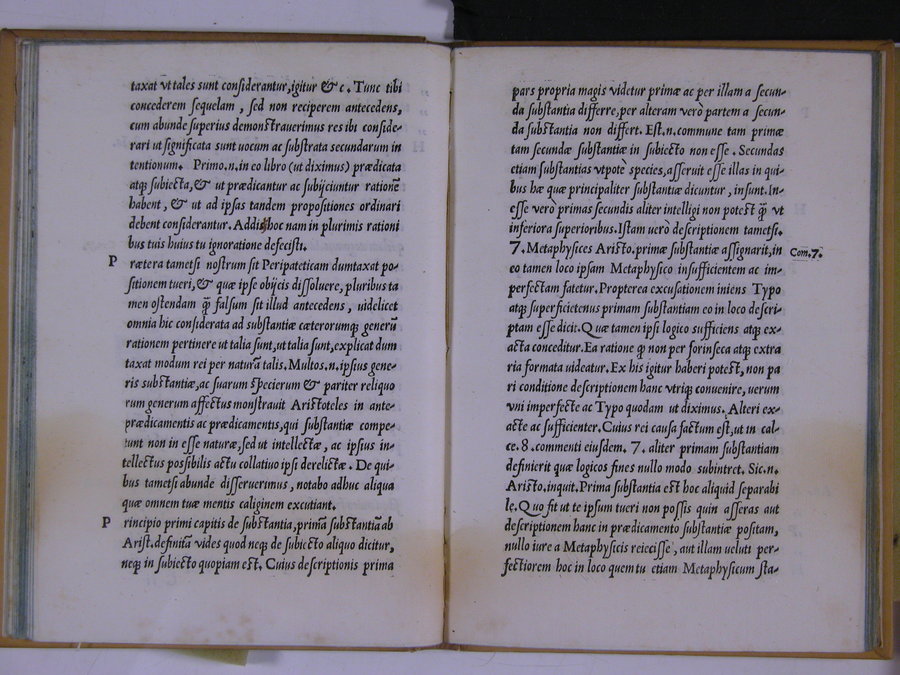 taxat vt tales sunt considerantur, igitur & c. Tunc tibi
concederem sequelam, sed non reciperem antecedens,
cum abunde superius demonstrauerimus res ibi conside-
rari ut significata sunt uocum ac substrata secundarum in
tentionum. Primo.n.in eo libro (ut diximus) prædicata
atq; subiecta, & ut prædicantur ac subijciuntur rationẽ
habent, & ut ad ipsas tandem propositiones ordinari
debent considerantur. Addis hoc nam in plurimis rationi
bus tuis huius tu ignoratione defecisti.
P rætera tametsi nostrum sit Peripateticam dumtaxat po-
sitionem tueri, & quæ ipse obijcis dissoluere, pluribus ta
men ostendam q̃ falsum sit illud antecedens, uidelicet
omnia hic considerata ad substantiæ cæterorumq; generũ
rationem pertinere ut talia sunt, ut talia sunt, explicat dum
taxat modum rei per naturã talis. Multos.n.ipsius gene-
ris substantiæ, ac suarum specierum & pariter reliquo
rum generum affectus monstrauit Aristoteles in ante-
prædicamentis ac prædicamentis, qui substantiæ compe-
tunt non in esse naturæ, sed ut intellectæ, ac ipsius in-
tellectus possibilis actu collatiuo ipsi derelictæ. De qui-
bus tametsi abunde disseruerimus, notabo adhuc aliqua
quæ omnem tuæ mentis caliginem excutiant.
P rincipio primi capitis de substantia, primã substantiã ab
Arist. definitã vides quod neq; de subiecto aliquo dicitur,
neq; in subiecto quopiam est. Cuius descriptionis prima
pars propria magis videtur primæ ac per illam a secun-
da substantia differre, per alteram verò partem a secun-
da substantia non differt. Est.n.commune tam primæ
tam secundæ substantiæ in subiecto non esse. Secundas
etiam substantias vtpotè species, asseruit esse illas in qui-
bus hæ quæ principaliter substantiæ dicuntur, insunt. In-
esse verò primas secundis aliter intelligi non potest q̃ vt
inferiora superioribus. Istam uerò descriptionem tametsi.
7. Metaphysices Aristo. primæ substantiæ assignarit, in
Com.7.
eo tamen loco ipsam Metaphysico insufficientem ac im-
perfectam fatetur. Propterea excusationem iniens Typo
atq; superficietenus primam substantiam eo in loco descri-
ptam esse dicit. Quæ tamen ipsi logico sufficiens atq; ex-
acta conceditur. Ea ratione q̃ non per forinseca atq; extra
ria formata uideatur. Ex his igitur haberi potest, non pa
ri conditione descriptionem hanc vtriq; conuenire, uerum
vni imperfecte ac Typo quodam ut diximus. Alteri ex-
acte ac sufficienter. Cuius rei causa factum est, ut in cal-
ce. 8. commenti eiusdem. 7. aliter primam substantiam
definierit quæ logicos fines nullo modo subintret. Sic.n.
Aristo. inquit. Prima substantia est hoc aliquid separabi
lę. Quo fit ut te ipsum tueri non possis quin asseras aut
descriptionem hanc in prædicamento substantiæ positam,
nullo iure a Metaphysicis reiecisse, aut illam ueluti per-
fectiorem hoc in loco quem tu etiam Metaphysicum sta-